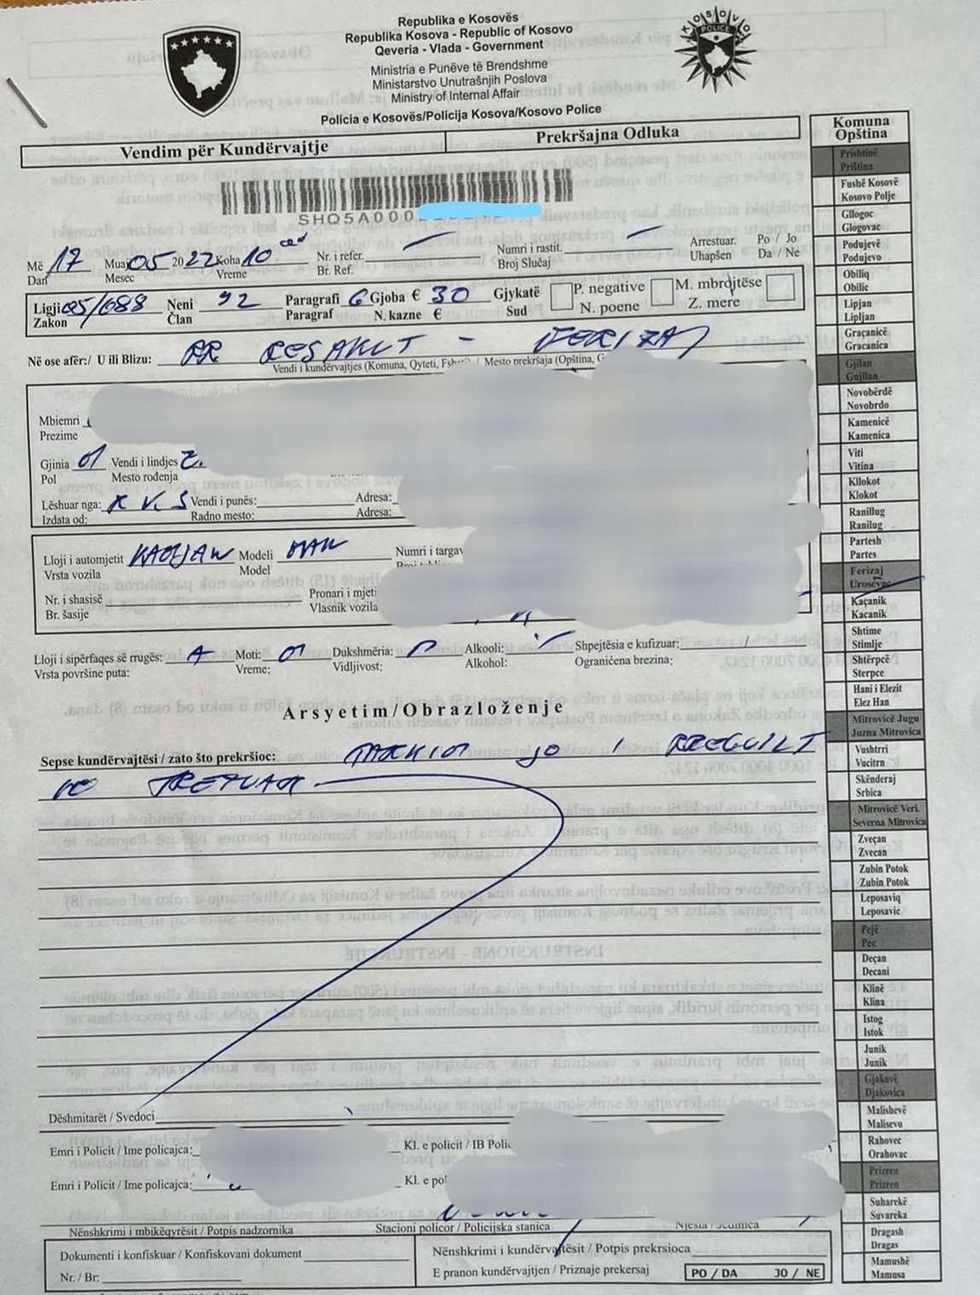 Republika e Kosovës
Republika Kosova - Republic of Kosovo
Qeveria - Vlada - Government
Ministria e Punëve të Brendshme
Ministarstvo Unutrašnjih Poslova
Ministry of Internal Affair
Policia e Kosovës/Policija Kosova/Kosovo Police
KOSOVO
POLICE
Vendim për Kundërvajtje Prekršajna Odluka
SHQ5A000
Më 17 Muaj 05 2022 Koha 10 Nr. i refer. Numri i rastit. Arrestuar. Po / Jo
Dan Mesec Vreme Br. Ref. Broj Slučaj Uhapšen Da / Ne
Ligji 05/088 Neni 92 Paragrafi 6 Gjoba € 30 Gjykatë P. negative M. mbrdjtëse
Zakon Član Paragraf N. kazne € Sud N. poene Z. mere
Në ose afër:/ U ili Blizu: RR - FERIZAJ
Vendi i kundërvajtjes (Komuna, Qyteti, / Mesto prekršaja (Opština,
Mbiemri
Prezime
Gjinia 01 Vendi i lindjes
Pol Mesto rođenja
Lëshuar nga: Vendi i punës: Adresa:
Izdata od: Radno mesto: Adresa:
Lloji i automjetit Modeli MAN Numri i targav
Vrsta vozila Model
Nr. i shasisë Pronari i mjeti
Br. šasije Vlasnik vozila
Lloji i sipërfaqes së rrugës: A Moti: 01 Dukshmëria: Alkooli: Shpejtësia e kufizuar:
Vrsta površine puta: Vreme: Vidljivost: Alkohol: Ograničena brezina;
Arsyetim/Obrazloženje
Sepse kundërvajtësi / zato što prekršioc: PARKIM JO I RREGULLT
NE TROTUAR
Dëshmitarët / Svedoci
Emri i Policit / Ime policajca: Kl. e policit / IB Polic
Emri i Policit / Ime policajca: Kl. e pol
Nënshkrimi i mbikëqyrësit / Potpis nadzornika Stacioni policor / Policijska stanica Njësia / Jedinica
Dokumenti i konfiskuar / Konfiskovani dokument
Nr. / Br:
Nënshkrimi i kundërvajtësit / Potpis prekrsioca
E pranon kundërvajtjen / Priznaje prekersaj PO / DA JO / NE
Komuna
Opština
Prishtinë
Priština
Fushë Kosovë
Kosovo Polje
Gllogoc
Glogovac
Podujevë
Podujevo
Obiliq
Obilic
Lipjan
Lipljan
Graçanicë
Gracanica
Gjilan
Gnjilan
Novobërdë
Novobrdo
Kamenicë
Kamenica
Viti
Vitina
Kllokot
Klokot
Ranillug
Ranilug
Partesh
Partes
Ferizaj
Uroševac
Kaçanik
Kacanik
Shtime
Stimlje
Shtërpcë
Sterpce
Hani i Elezit
Elez Han
Mitrovicë Jugu
Juzna Mitrovica
Vushtrri
Vucitrn
Skënderaj
Srbica
Mitrovicë Veri.
Severna Mitrovica
Zveçan
Zvecan
Zubin Potok
Zubin Potok
Leposaviq
Leposavic
Pejë
Pec
Deçan
Decani
Klinë
Klina
Istog
Istok
Junik
Junik
Gjakovë
Djakovica
Malishevë
Malisevo
Rahovec
Orahovac
Prizren
Prizren
Suharekë
Suvareka
Dragash
Dragas
Mamushë
Mamusa